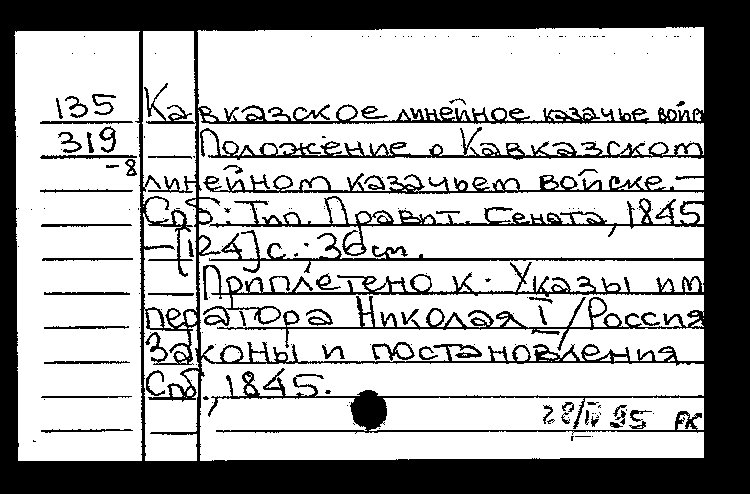 135 Кавказское линейное казачье войс
319 Положение о Кавказском
-8 линейном казачьем войске.—
Спб: Тип. Правит. Сената, 1845
—[124] с.; 36 см.
Приплетено к: Указы им
ператора Николая I / Россия
Законы и постановления
Спб., 1845.
28/IV 95 РК